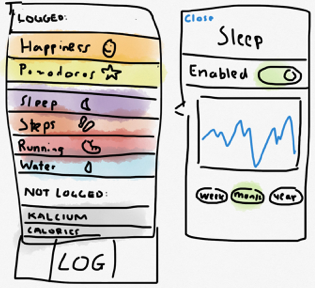 LOGGED:
Happiness
Pomodoros
Sleep
Steps
Running
Water
NOT LOGGED:
KALCIUM
CALORIES
LOG
Close
Sleep
Enabled
week
month
year